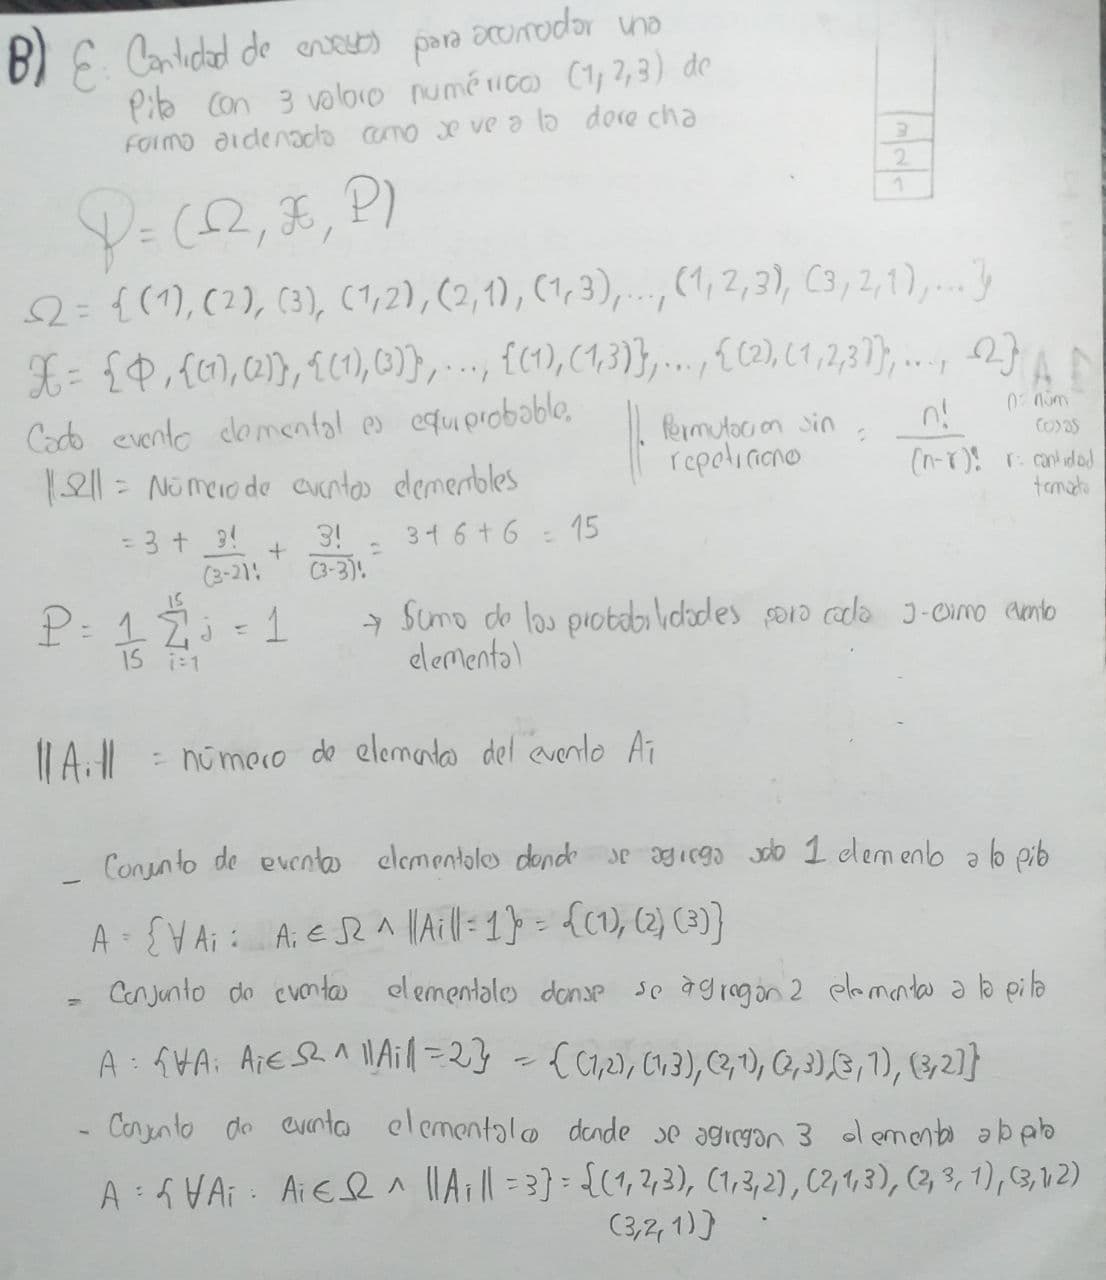 B) ε: Cantidad de ensayos para acomodar una
pila con 3 valores numéricos (1, 2, 3) de
forma ordenada como se ve a la derecha
3
2
1
P = (Ω, X, P)
Ω = {(1), (2), (3), (1,2), (2,1), (1,3), ..., (1,2,3), (3,2,1), ...}
X = {Φ, {(1), (2)}, {(1), (3)}, ..., {(1), (1,3)}, ..., {(2), (1,2,3)}, ..., Ω}
Cada evento elemental es equiprobable.
||. Permutacion sin repeticiones = n! / (n-r)!
n: núm cosas
r: cantidad tomada
||Ω|| = Número de eventos elementales
= 3 + 3!/(3-2)! + 3!/(3-3)! = 3 + 6 + 6 = 15
P = 1/15 15 Σ i=1 j = 1 → Suma de las probabilidades para cada j-esimo evento
elemental
||Ai|| = número de elementos del evento Ai
- Conjunto de eventos elementales donde se agrega solo 1 elemento a la pila
A = {∀Ai : Ai ∈ Ω ∧ ||Ai|| = 1} = {(1), (2) (3)}
= Conjunto de eventos elementales donse se agregan 2 elementos a la pila
A = {∀Ai Ai ∈ Ω ∧ ||Ai|| = 2} = {(1,2), (1,3), (2,1), (2,3), (3,1), (3,2)}
- Conjunto de eventos elementales donde se agregan 3 elementos a la pila
A = {∀Ai : Ai ∈ Ω ∧ ||Ai|| = 3} = {(1,2,3), (1,3,2), (2,1,3), (2,3,1), (3,1,2)
(3,2,1)}